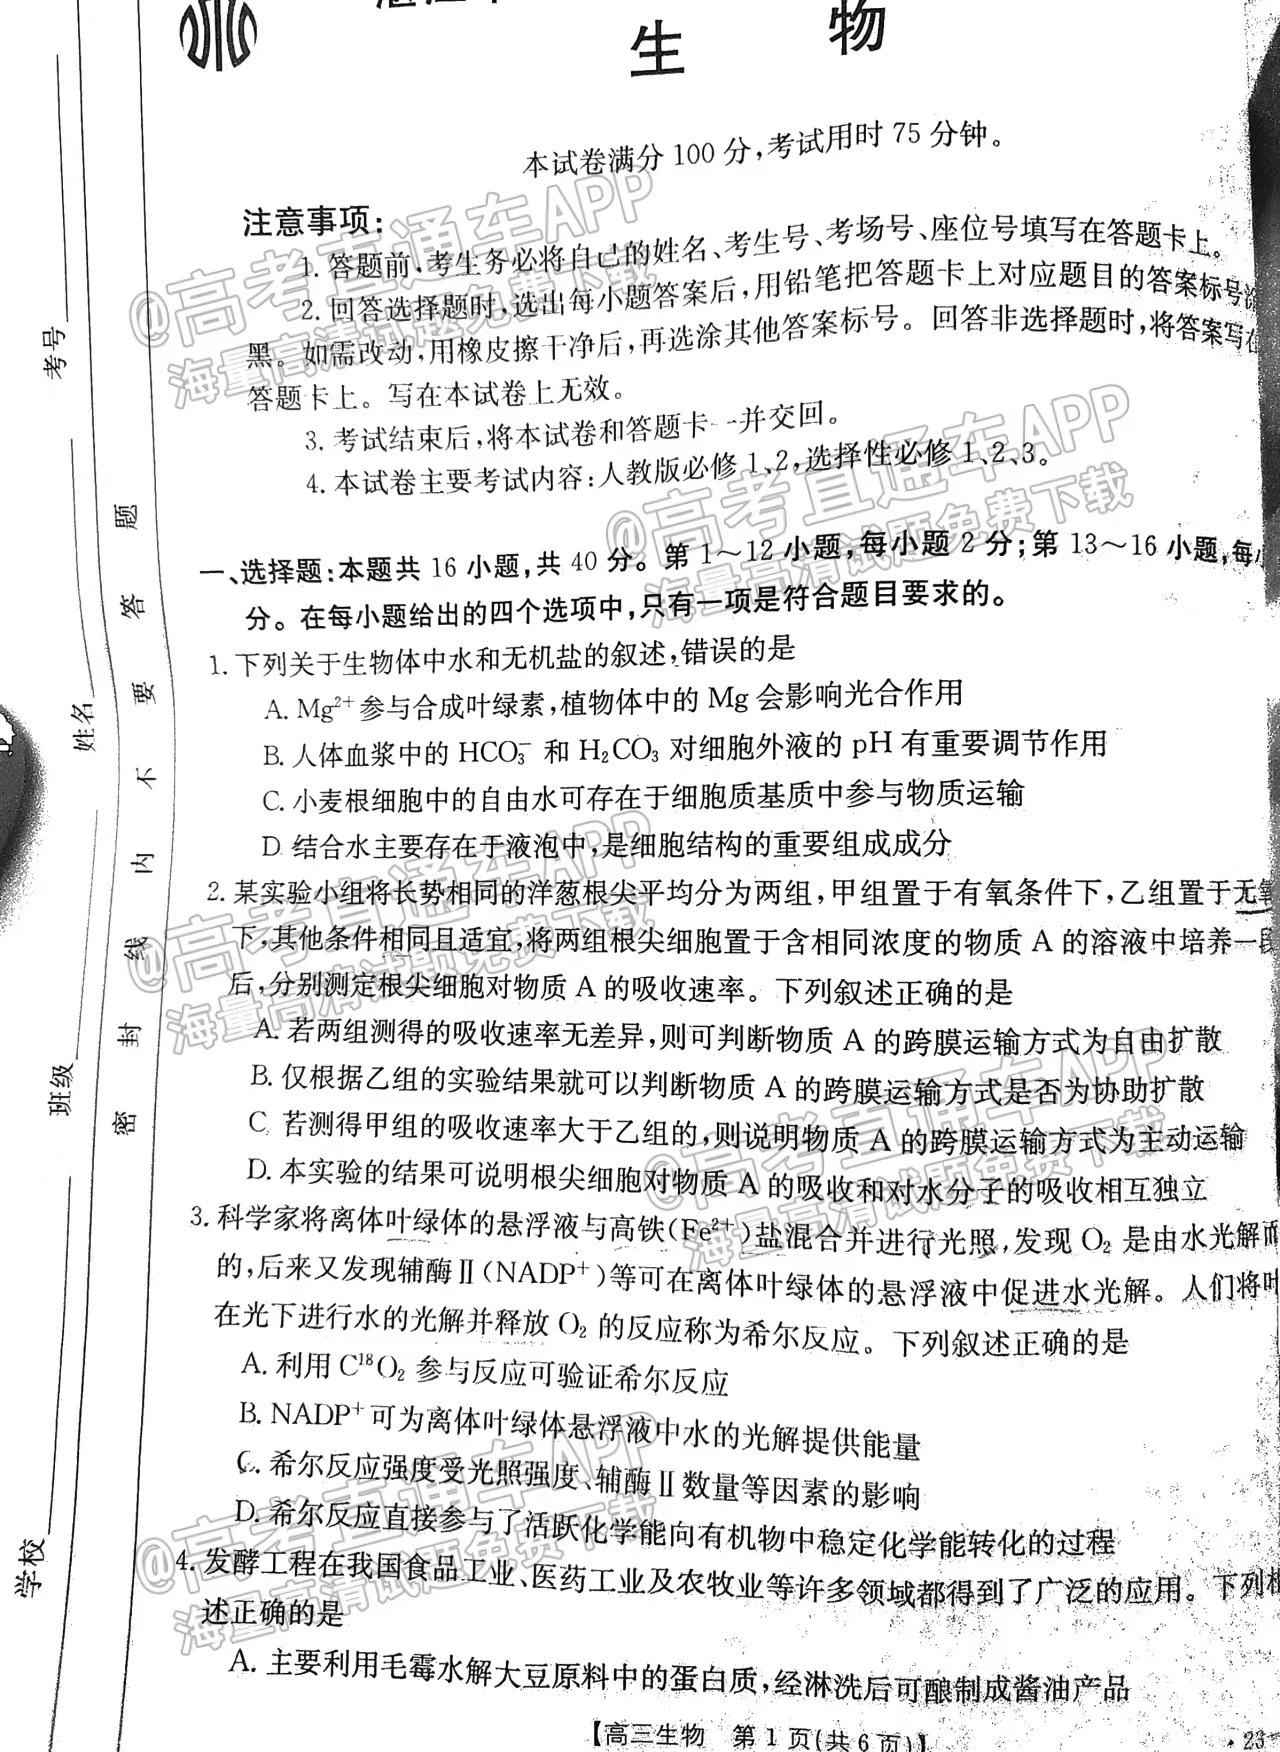 生 物
本试卷满分 100 分,考试用时 75 分钟。
注意事项:
1. 答题前,考生务必将自己的姓名、考生号、考场号、座位号填写在答题卡上。
2. 回答选择题时,选出每小题答案后,用铅笔把答题卡上对应题目的答案标号涂
黑。如需改动,用橡皮擦干净后,再选涂其他答案标号。回答非选择题时,将答案写在
答题卡上。写在本试卷上无效。
3. 考试结束后,将本试卷和答题卡一并交回。
4. 本试卷主要考试内容:人教版必修 1、2,选择性必修 1、2、3。
一、选择题:本题共 16 小题,共 40 分。第 1~12 小题,每小题 2 分;第 13~16 小题,每小
分。在每小题给出的四个选项中,只有一项是符合题目要求的。
1. 下列关于生物体中水和无机盐的叙述,错误的是
A. Mg²⁺参与合成叶绿素,植物体中的 Mg 会影响光合作用
B. 人体血浆中的 HCO₃⁻ 和 H₂CO₃ 对细胞外液的 pH 有重要调节作用
C. 小麦根细胞中的自由水可存在于细胞质基质中参与物质运输
D. 结合水主要存在于液泡中,是细胞结构的重要组成成分
2. 某实验小组将长势相同的洋葱根尖平均分为两组,甲组置于有氧条件下,乙组置于无氧
下,其他条件相同且适宜,将两组根尖细胞置于含相同浓度的物质 A 的溶液中培养一段
后,分别测定根尖细胞对物质 A 的吸收速率。下列叙述正确的是
A. 若两组测得的吸收速率无差异,则可判断物质 A 的跨膜运输方式为自由扩散
B. 仅根据乙组的实验结果就可以判断物质 A 的跨膜运输方式是否为协助扩散
C. 若测得甲组的吸收速率大于乙组的,则说明物质 A 的跨膜运输方式为主动运输
D. 本实验的结果可说明根尖细胞对物质 A 的吸收和对水分子的吸收相互独立
3. 科学家将离体叶绿体的悬浮液与高铁(Fe²⁺)盐混合并进行光照,发现 O₂ 是由水光解而
的,后来又发现辅酶Ⅱ(NADP⁺)等可在离体叶绿体的悬浮液中促进水光解。人们将叶
在光下进行水的光解并释放 O₂ 的反应称为希尔反应。下列叙述正确的是
A. 利用 C¹⁸O₂ 参与反应可验证希尔反应
B. NADP⁺可为离体叶绿体悬浮液中水的光解提供能量
C. 希尔反应强度受光照强度、辅酶Ⅱ数量等因素的影响
D. 希尔反应直接参与了活跃化学能向有机物中稳定化学能转化的过程
4. 发酵工程在我国食品工业、医药工业及农牧业等许多领域都得到了广泛的应用。下列相
述正确的是
A. 主要利用毛霉水解大豆原料中的蛋白质,经淋洗后可酿制成酱油产品
【高三生物 第 1 页(共 6 页)】
· 23
学校
班级
姓名
考号
密 封 线 内 不 要 答 题
@高考直通车APP
海量高清试题免费下载
@高考直通车APP
海量高清试题免费下载
@高考直通车APP
海量高清试题免费下载
@高考直通车APP
海量高清试题免费下载
@高考直通车APP
海量高清试题免费下载